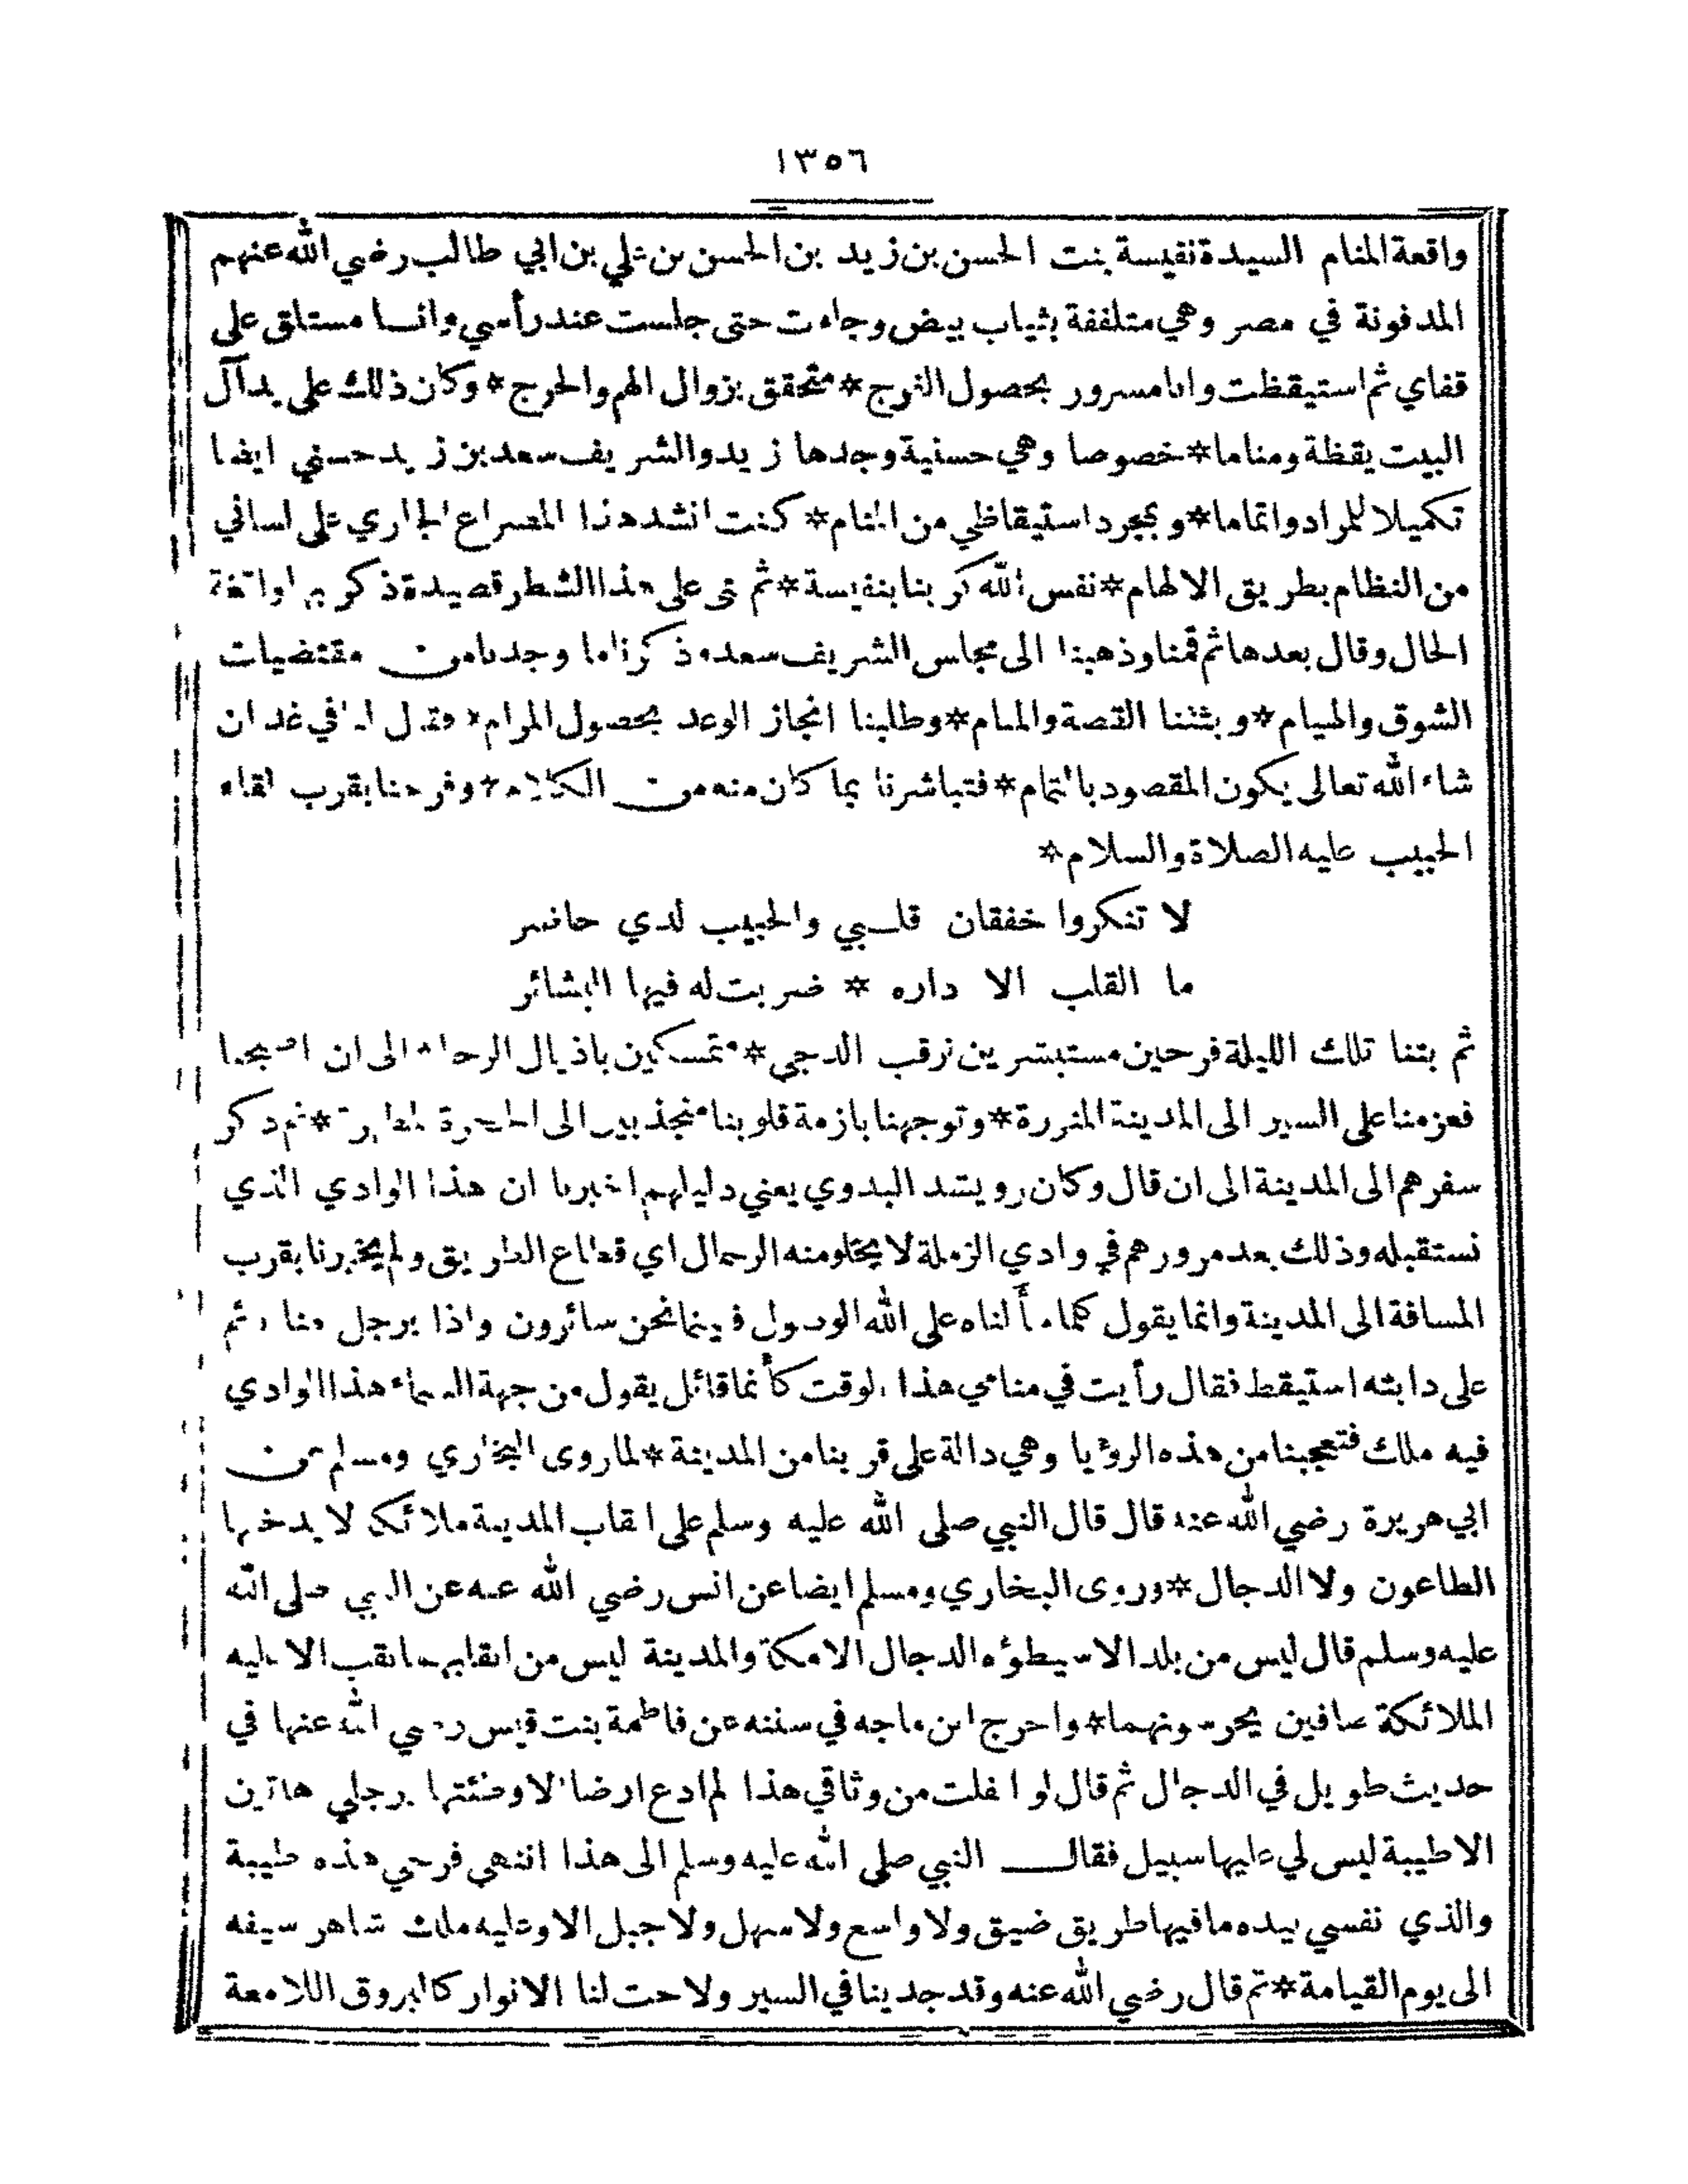 ١٣٥٦
واقعة المنام السيدة نفيسة بنت الحسن بن زيد بن الحسن بن علي بن ابي طالب رضي الله عنهم
المدفونة في مصر وهي متلففة بثياب بيض وجاءت حتى جلست عند رأسي وانا مستلق على
قفاي ثم استيقظت وانا مسرور بحصول الفرج * متحقق بزوال الهم والحرج * وكان ذلك على يد آل
البيت يقظة ومناما * خصوصا وهي حسنية وجدها زيد والشريف سعد بن زيد حسني ايضا
تكميلا للمراد واتماما * وبمجرد استيقاظي من المنام * كنت انشد هذا المصراع الجاري على لساني
من النظام بطريق الالهام * نفس الله كربنا بنفيسة * ثم بنى على هذا الشطر قصيدة ذكر بها واقعة
الحال وقال بعدها ثم قمنا وذهبنا الى مجلس الشريف سعد وذكرنا ما وجدنا من مقتضيات
الشوق والهيام * وبثثنا القصة والمنام * وطلبنا انجاز الوعد بحصول المرام * فقال لنا في غد ان
شاء الله تعالى يكون المقصود بالتمام * فتباشرنا بما كان منه من الكلام * وفرحنا بقرب لقاء
الحبيب عليه الصلاة والسلام *
لا تنكروا خفقان قلبي والحبيب لدي حاضر
ما القلب الا داره * ضربت له فيها البشائر
ثم بتنا تلك الليلة فرحين مستبشرين نرقب الدجي * متمسكين باذيال الرجاء الى ان اصبحنا
فعزمنا على السير الى المدينة المنورة * وتوجهنا بازمة قلوبنا منجذبين الى الحضرة المطهرة * ثم ذكر
سفرهم الى المدينة الى ان قال وكان رويشد البدوي يعني دليلهم اخبرنا ان هذا الوادي الذي
نستقبله وذلك بعد مرورهم في وادي الرملة لا يخلو منه الرجال اي قطاع الطريق ولم يخبرنا بقرب
المسافة الى المدينة وانما يقول كلما سألناه على الله الوصول فبينما نحن سائرون واذا برجل منا نائم
على دابته استيقظ فقال رأيت في منامي هذا الوقت كأنما قائل يقول من جهة السماء هذا الوادي
فيه ملك فتعجبنا من هذه الرؤيا وهي دالة على قربنا من المدينة * لما روى البخاري ومسلم عن
ابي هريرة رضي الله عنه قال قال النبي صلى الله عليه وسلم على انقاب المدينة ملائكة لا يدخلها
الطاعون ولا الدجال * وروى البخاري ومسلم ايضا عن انس رضي الله عنه عن النبي صلى الله
عليه وسلم قال ليس من بلد الا سيطؤه الدجال الا مكة والمدينة ليس من انقابهما نقب الا عليه
الملائكة صافين يحرسونهما * واخرج ابن ماجه في سننه عن فاطمة بنت قيس رضي الله عنها في
حديث طويل في الدجال ثم قال لو انفلت من وثاقي هذا لم ادع ارضا الا وطئتها برجلي هاتين
الا طيبة ليس لي عليها سبيل فقال النبي صلى الله عليه وسلم الى هذا انتهى فرحي هذه طيبة
والذي نفسي بيده ما فيها طريق ضيق ولا واسع ولا سهل ولا جبل الا وعليه ملك شاهر سيفه
الى يوم القيامة * ثم قال رضي الله عنه وقد جد بنا في السير ولاحت لنا الانوار كالبروق اللامعة